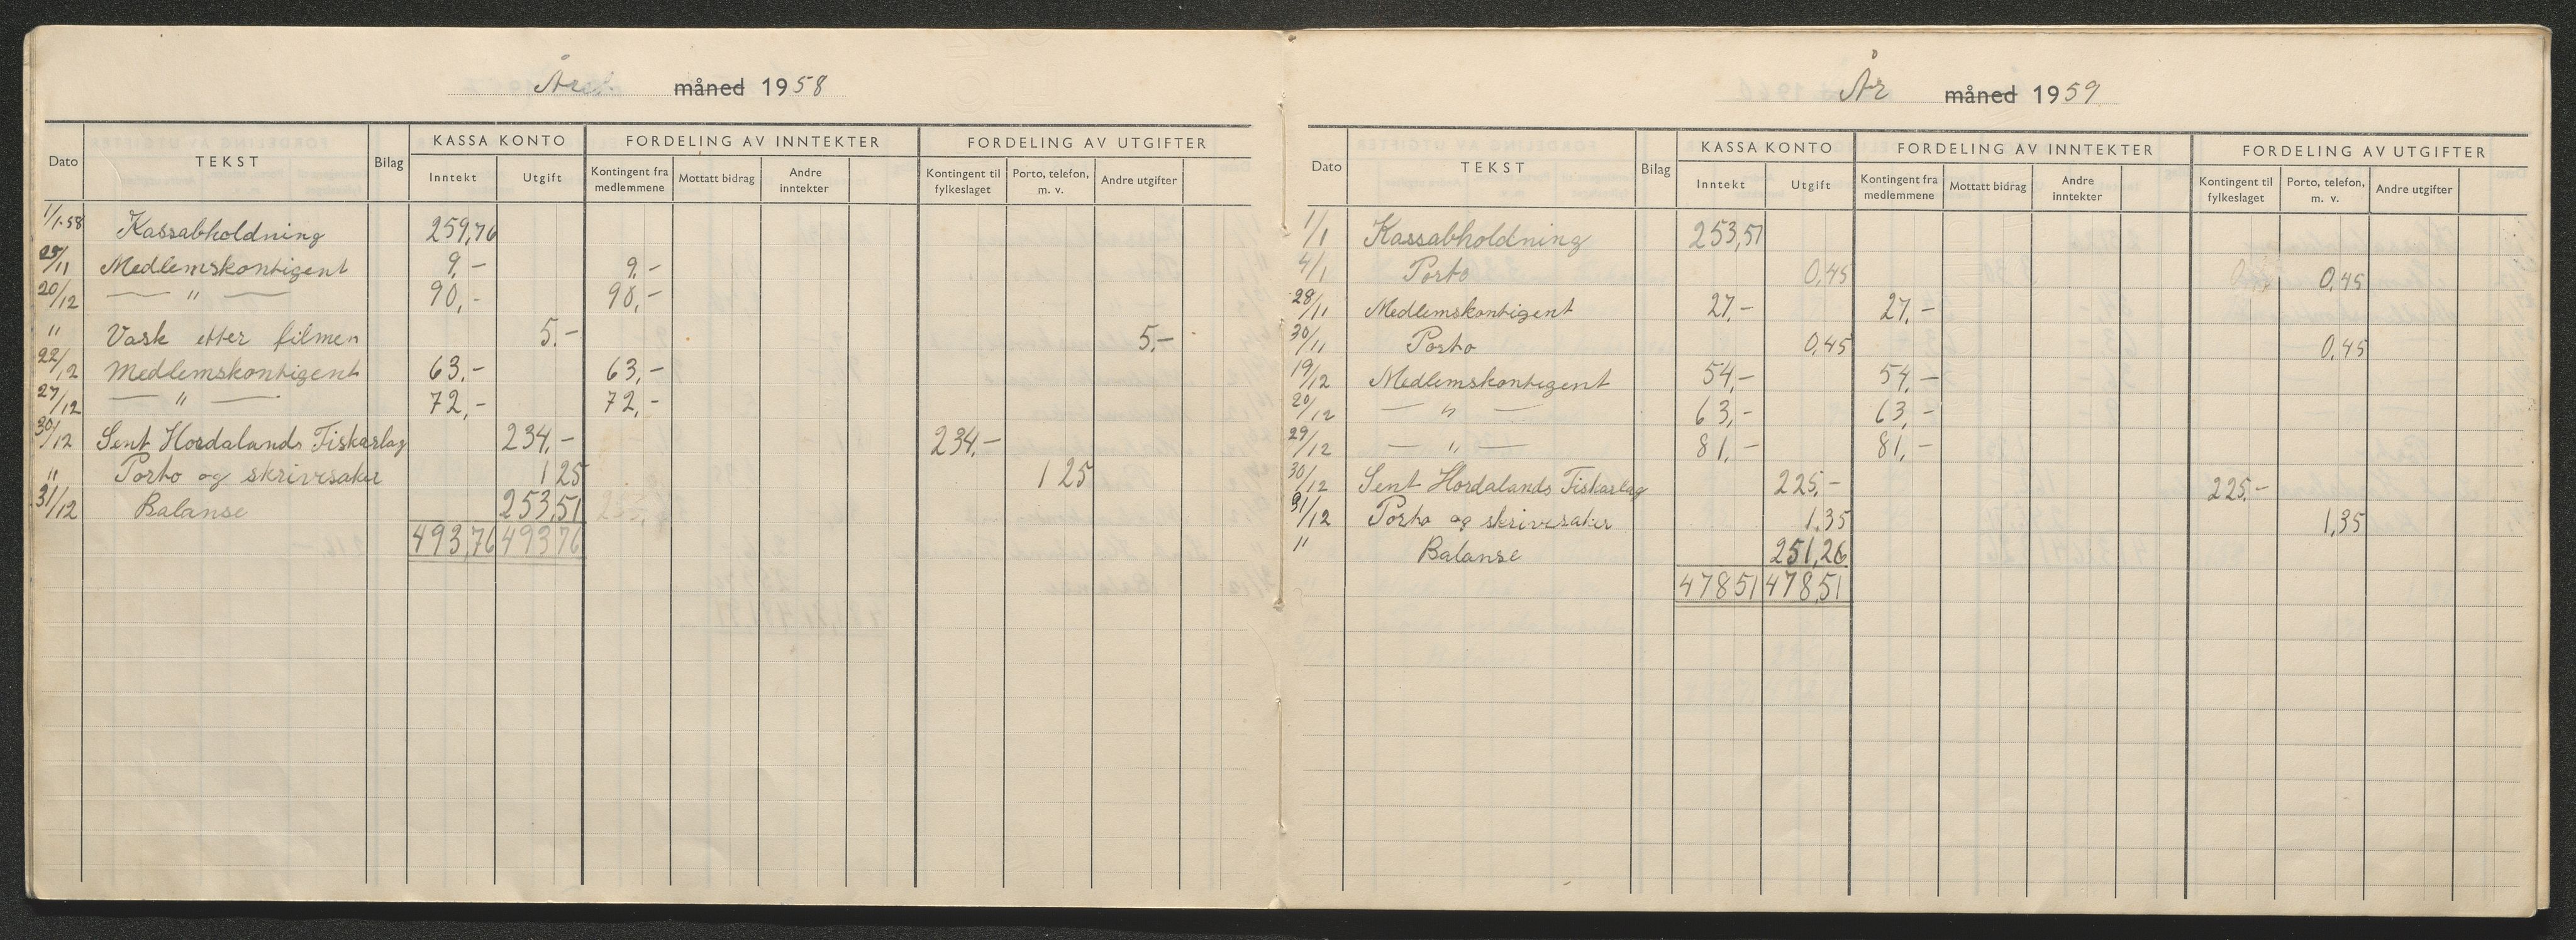 Året måned 1958
KASSA KONTO FORDELING AV INNTEKTER FORDELING AV UTGIFTER
Dato TEKST Bilag Inntekt Utgift Kontingent fra medlemmene Mottatt bidrag Andre inntekter Kontingent til fylkeslaget Porto, telefon, m. v. Andre utgifter
1/1.58 Kassabholdning 259,76
25/11 Medlemskontigent 9,- 9,-
20/12 — " — 90,- 90,-
" Vask etter filmen 5.- 5.-
22/12 Medlemskontigent 63,- 63,-
27/12 — " — 72,- 72,-
30/12 Sent Hordalands Fiskarlag 234,- 234,-
" Porto og skrivesaker 1 25 1 25
31/12 Balanse 253,51
493,76 493,76
År måned 1959
KASSA KONTO FORDELING AV INNTEKTER FORDELING AV UTGIFTER
Dato TEKST Bilag Inntekt Utgift Kontingent fra medlemmene Mottatt bidrag Andre inntekter Kontingent til fylkeslaget Porto, telefon, m. v. Andre utgifter
1/1 Kassabholdning 253,51
4/1 Porto 0,45 0,45
28/11 Medlemskontigent 27,- 27,-
30/11 Porto 0,45 0,45
19/12 Medlemskontigent 54,- 54,-
20/12 — " — 63,- 63,-
29/12 — " — 81,- 81,-
30/12 Sent Hordalands Fiskarlag 225,- 225,-
31/12 Porto og skrivesaker 1.35 1,35
" Balanse 251,26
478 51 478,51